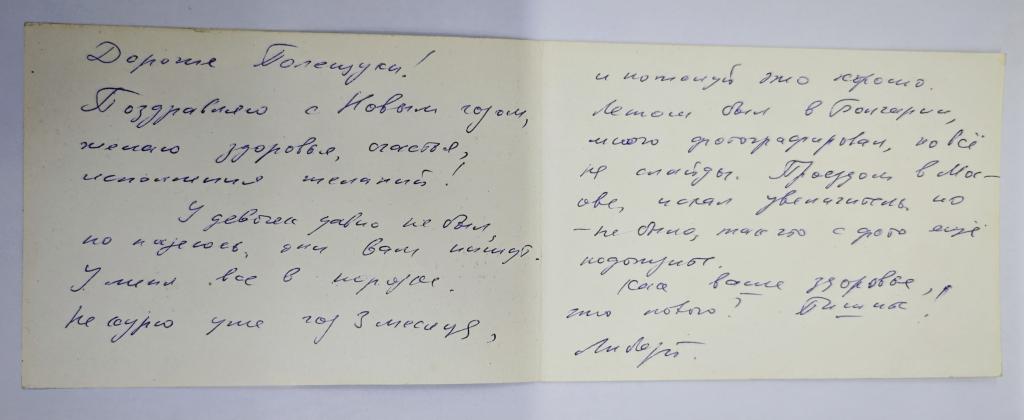 Дорогие Полещуки!
Поздравляю с Новым годом,
желаю здоровья, счастья,
исполнения желаний!
У девочек давно не был,
но надеюсь, они вам пишут.
У меня все в порядке.
Не курю уже год 3 месяца,
и пожалуй это хорошо.
Летом был в Болгарии,
много фотографировал, но всё
на слайды. Проездом в Мос-
кве, искал увеличитель но
- не было, так что с фото ещё
подождите.
Как ваше здоровье,
что нового? Пишите!